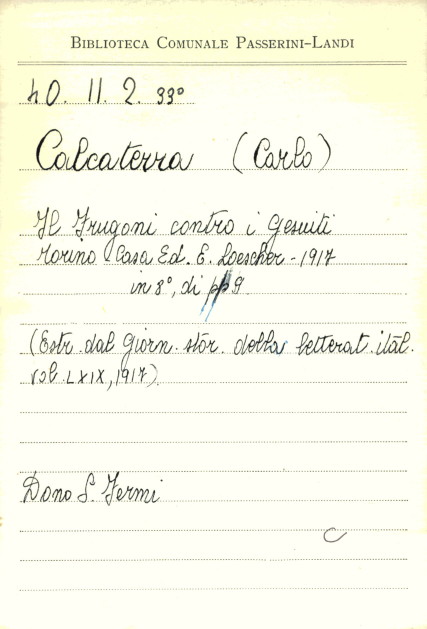 BIBLIOTECA COMUNALE PASSERINI-LANDI
40. 11. 2. 33°
Calcaterra (Carlo)
Il Frugoni contro i Gesuiti
Torino Casa Ed. E. Loescher - 1917
in 8°, di pp 9
(Estr. dal Giorn. stor. della letterat. ital.
vol. LXIX, 1917).
Dono S. Fermi
C